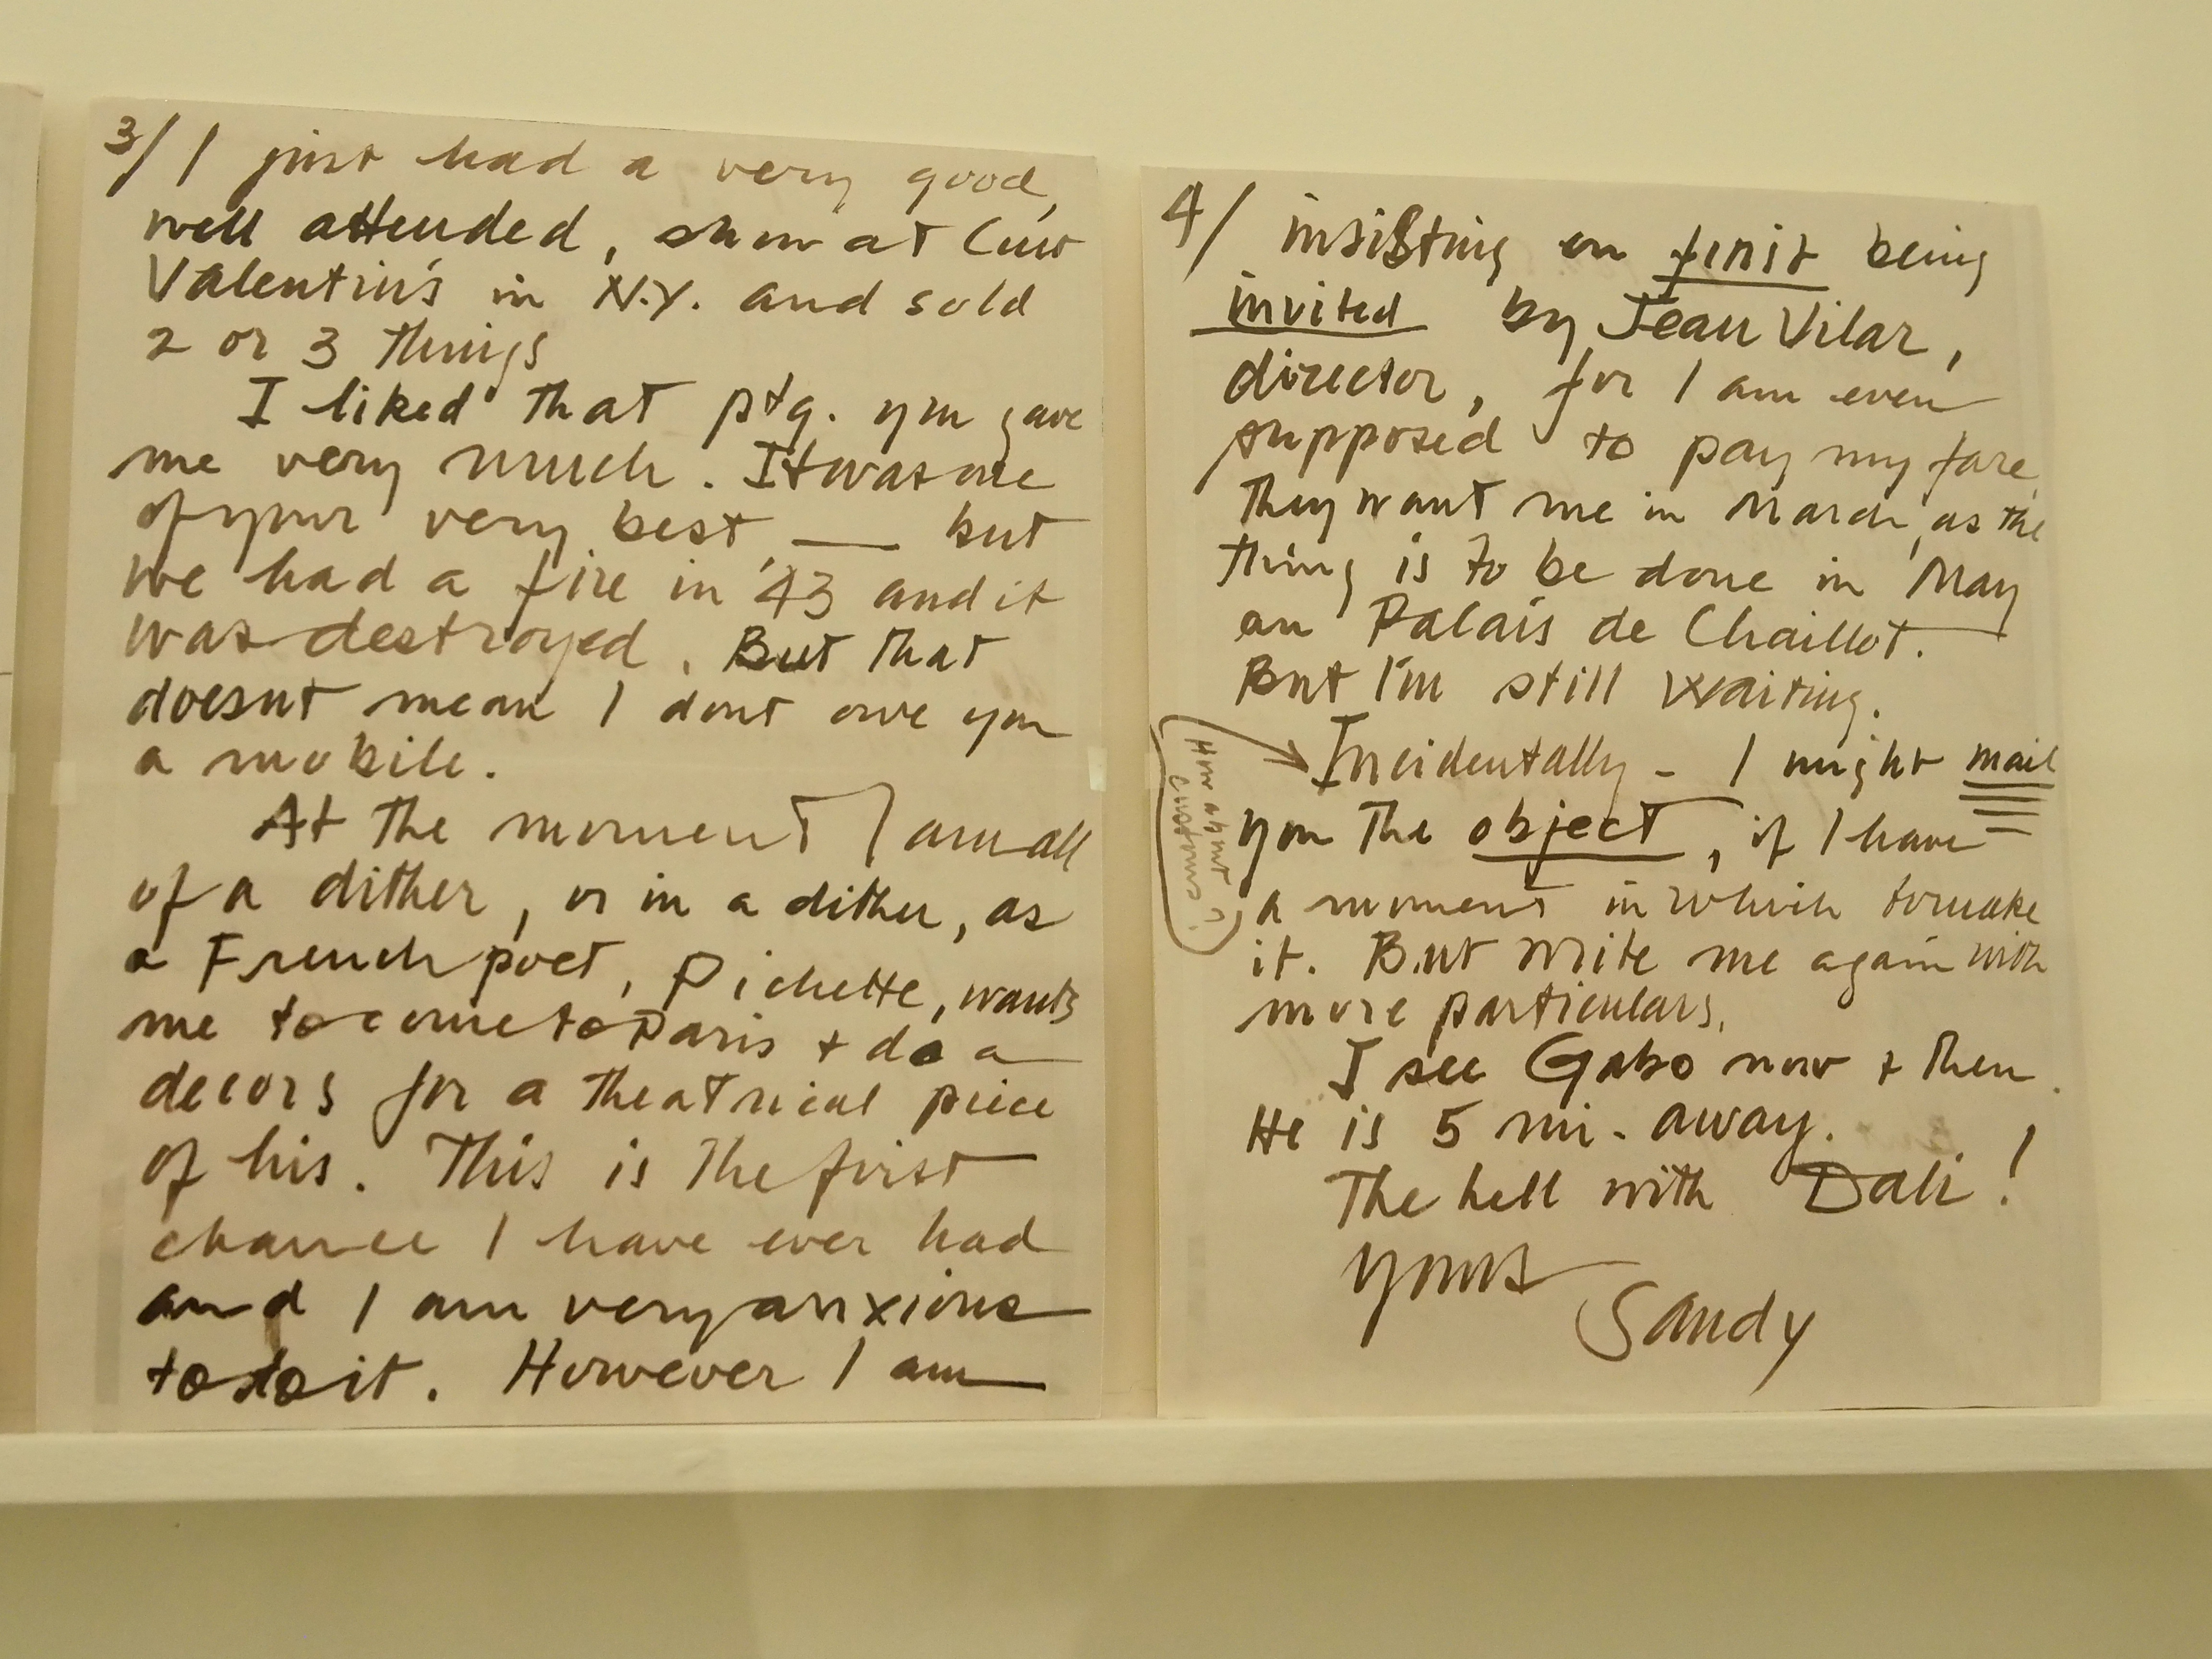 3/ I just had a very good,
well attended, show at Curt
Valentin's in N.Y. and sold
2 or 3 things
I liked that ptg. you gave
me very much. It was one
of your very best, — but
we had a fire in '43 and it
was destroyed. But that
doesnt mean I dont owe you
a mobile.
At the moment I am all
of a dither, or in a dither, as
a French poet, Pichette, wants
me to come to Paris + do a
decors for a theatrical piece
of his. This is the first
chance I have ever had
and I am very anxious
to do it. However I am
4/ insisting on first being
invited by Jean Vilar,
director, for I am even
supposed to pay my fare.
They want me in March, as the
thing is to be done in May
au Palais de Chaillot.
But I'm still waiting.
How about
customs?
Incidentally - I might mail
you the object, if I have
a moment in which to make
it. But write me again with
more particulars.
I see Gabo now + then.
He is 5 mi. away.
The hell with Dali!
Yours
Sandy